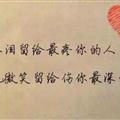 泪留给最疼你的人
微笑留给伤你最深